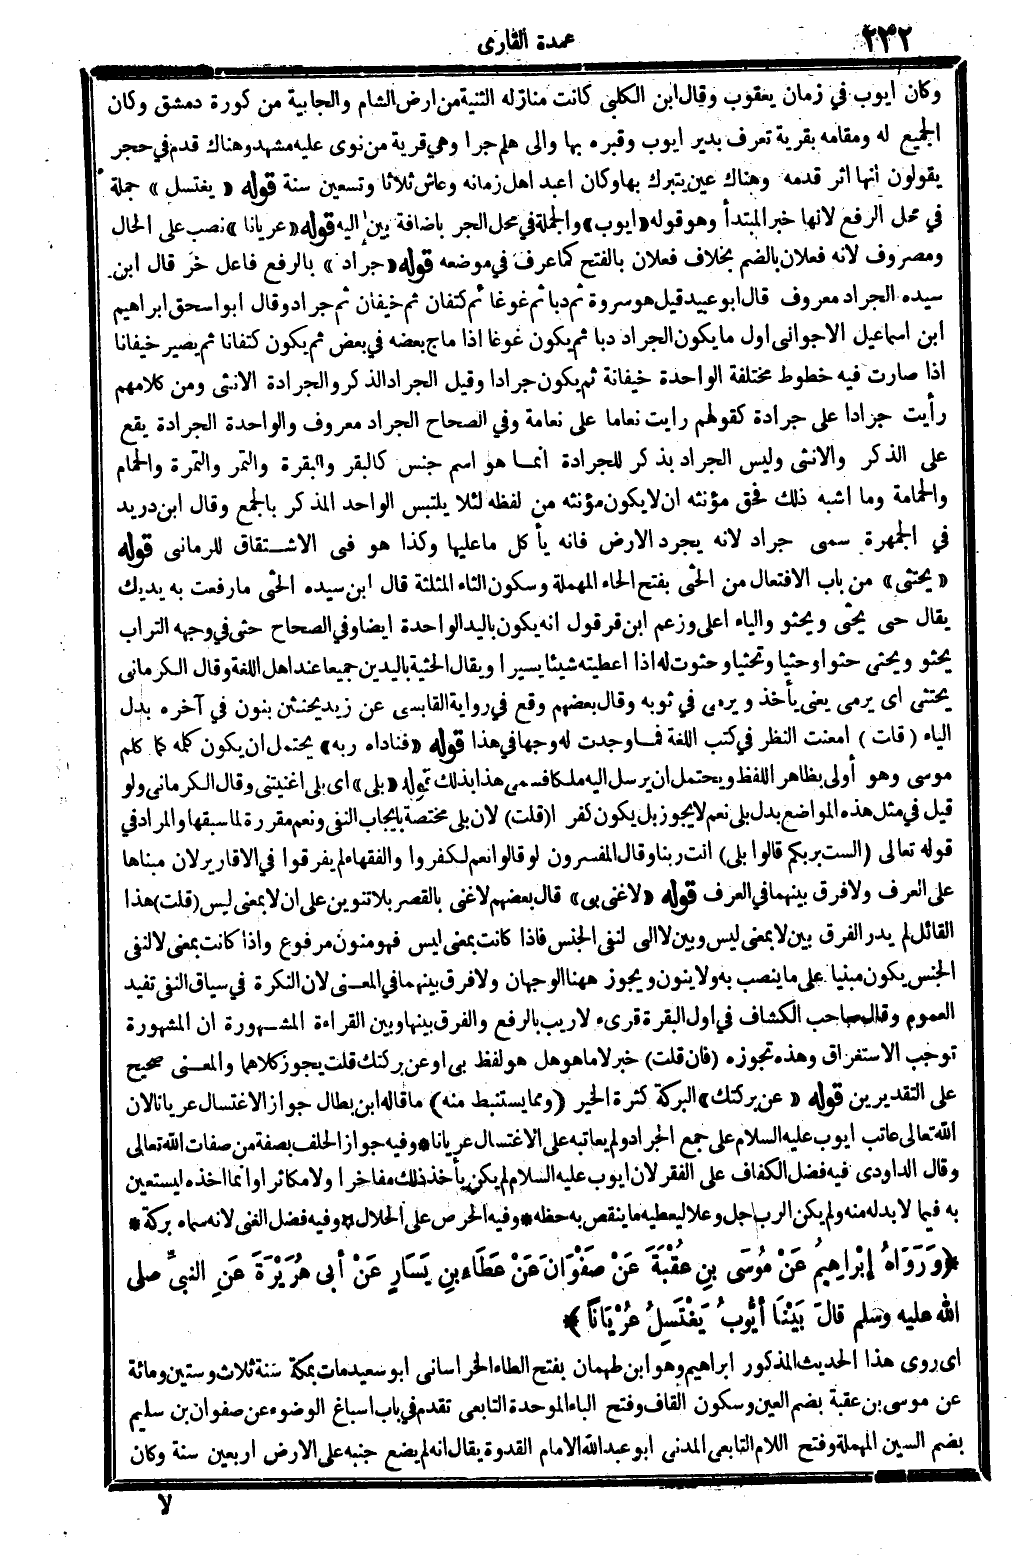 ٢٣٢
عمدة القارى
وكان ايوب في زمان يعقوب وقال ابن الكلبى كانت منازله الثنية من ارض الشام والجابية من كورة دمشق وكان
الجميع له ومقامه بقرية تعرف بدير ايوب وقبره بها والى هلم جرا وهي قرية من نوى عليه مشهد وهناك قدم في حجر
يقولون انها اثر قدمه وهناك عين يتبرك بها وكان اعبد اهل زمانه وعاش ثلاثا وتسعين سنة قوله «يغتسل» جملة
في محل الرفع لانها خبر المبتدأ وهو قوله «ايوب» والجملة في محل الجر باضافة بين اليه قوله «عريانا» نصب على الحال
ومصروف لانه فعلان بالضم بخلاف فعلان بالفتح كما عرف في موضعه قوله «جراد» بالرفع فاعل خر قال ابن
سيده الجراد معروف قال ابو عبيد قيل هو سروة ثم دبا ثم غوغا ثم كتفان ثم خيفان ثم جراد وقال ابو اسحق ابراهيم
ابن اسماعيل الاجوانى اول ما يكون الجراد دبا ثم يكون غوغا اذا ماج بعضه في بعض ثم يكون كتفانا ثم يصير خيفانا
اذا صارت فيه خطوط مختلفة الواحدة خيفانة ثم يكون جرادا وقيل الجراد الذكر والجرادة الانثى ومن كلامهم
رأيت جرادا على جرادة كقولهم رايت نعاما على نعامة وفي الصحاح الجراد معروف والواحدة الجرادة يقع
على الذكر والانثى وليس الجراد بذكر للجرادة انما هو اسم جنس كالبقر والبقرة والتمر والتمرة والحمام
والحمامة وما اشبه ذلك فحق مؤنثه ان لا يكون مؤنثه من لفظه لئلا يلتبس الواحد المذكر بالجمع وقال ابن دريد
في الجمهرة سمى جراد لانه يجرد الارض فانه يأكل ما عليها وكذا هو فى الاشتقاق للرمانى قوله
«يحتثى» من باب الافتعال من الحثى بفتح الحاء المهملة وسكون الثاء المثلثة قال ابن سيده الحثى ما رفعت به يديك
يقال حثى يحثى ويحثو والياء اعلى وزعم ابن قرقول انه يكون باليد الواحدة ايضا وفي الصحاح حثى في وجهه التراب
يحثو ويحثى حثوا وحثيا وتحثيا وحثوت له اذا اعطيته شيئا يسيرا ويقال الحثية باليدين جميعا عند اهل اللغة وقال الكرمانى
يحتثى اى يرمى يعنى يأخذ ويرمى في ثوبه وقال بعضهم وقع في رواية القابسى عن زيد يحتثن بنون في آخره بدل
الياء (قلت) امعنت النظر في كتب اللغة فما وجدت له وجها في هذا قوله «فناداه ربه» يحتمل ان يكون كلمه كما كلم
موسى وهو أولى بظاهر اللفظ ويحتمل ان يرسل اليه ملكا فسمى هذا بذلك قوله «بلى» اى بلى اغنيتنى وقال الكرمانى ولو
قيل في مثل هذه المواضع بدل بلى نعم لا يجوز بل يكون كفرا (قلت) لان بلى مختصة بايجاب النفى ونعم مقررة لما سبقها والمراد في
قوله تعالى (الست بربكم قالوا بلى) انت ربنا وقال المفسرون لو قالوا نعم لكفروا والفقهاء لم يفرقوا في الاقارير لان مبناها
على العرف ولا فرق بينهما في العرف قوله «لا غنى بى» قال بعضهم لا غنى بالقصر بلا تنوين على ان لا بمعنى ليس (قلت) هذا
القائل لم يدر الفرق بين لا بمعنى ليس وبين لا التى لنفى الجنس فاذا كانت بمعنى ليس فهو منون مرفوع واذا كانت بمعنى لا لنفى
الجنس يكون مبنيا على ما ينصب به ولا ينون ويجوز ههنا الوجهان ولا فرق بينهما في المعنى لان النكرة في سياق النفى تفيد
العموم وقال صاحب الكشاف في اول البقرة قرىء لا ريب بالرفع والفرق بينها وبين القراءة المشهورة ان المشهورة
توجب الاستغراق وهذه تجوزه (فان قلت) خبر لا ما هو هل هو لفظ بى او عن بركتك قلت يجوز كلاهما والمعنى صحيح
على التقديرين قوله «عن بركتك» البركة كثرة الخير (ومما يستنبط منه) ما قاله ابن بطال جواز الاغتسال عريانا لان
الله تعالى عاتب ايوب عليه السلام على جمع الجراد ولم يعاتبه على الاغتسال عريانا * وفيه جواز الحلف بصفة من صفات الله تعالى
وقال الداودى فيه فضل الكفاف على الفقر لان ايوب عليه السلام لم يكن يأخذ ذلك مفاخرا ولا مكاثرا وانما اخذه ليستعين
به فيما لا بد له منه ولم يكن الرب جل وعلا ليعطيه ما ينقص به حظه * وفيه الحرص على الحلال * وفيه فضل الغنى لانه سماه بركة *
﴿وَرَوَاهُ إِبْرَاهِيمُ عَنْ مُوسَى بنِ عُقْبَةَ عَنْ صَفْوَانَ عَنْ عَطَاءِ بنِ يَسَارٍ عَنْ أَبى هُرَيْرَةَ عَنِ النبيِّ صلى
الله عليه وسلم قالَ بَيْنَا أَيُّوبُ يَغْتَسِلُ عُرْيَاناً﴾
اى روى هذا الحديث المذكور ابراهيم وهو ابن طهمان بفتح الطاء الخراسانى ابو سعيد مات بمكة سنة ثلاث وستين ومائة
عن موسى بن عقبة بضم العين وسكون القاف وفتح الباء الموحدة التابعى تقدم في باب اسباغ الوضوء عن صفوان بن سليم
بضم السين المهملة وفتح اللام التابعى المدنى ابو عبد الله الامام القدوة يقال انه لم يضع جنبه على الارض اربعين سنة وكان
لا